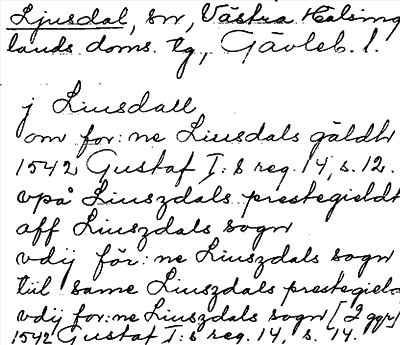 Ljusdal, sn, Västra Hälsing
lands doms. tg, Gävleb. l.
j Liusdall
om for:ne Liusdals gäldh
1542 Gustaf I:s reg. 14, s. 12.
vpå Liuszdals prestegieldt
aff Liuszdals sogn
vdij för:ne Liuszdals sogn
till same Liuszdals prestegield
vdij for:ne Liuszdals sogn [2 ggr]
1542 Gustaf I:s reg. 14, s. 14.